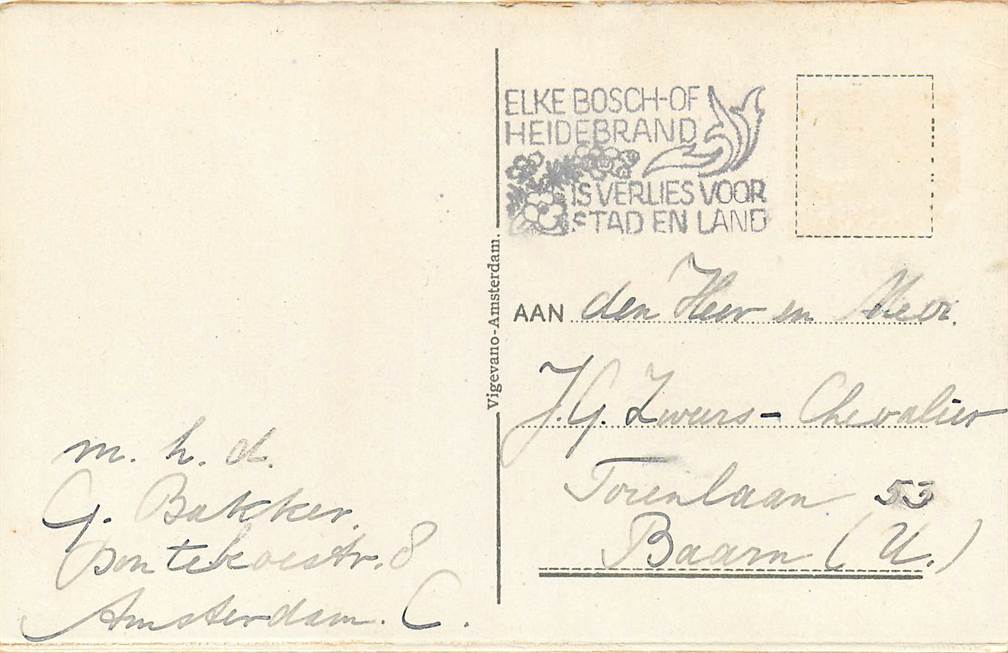 ELKE BOSCH-OF
HEIDEBRAND
IS VERLIES VOOR
STAD EN LAND
Vigevano-Amsterdam.
AAN den Heer en Mevr.
J. G. Zweers - Chevalier
Torenlaan 53
Baarn (U.)
m. h. d.
G. Bakker.
Bontekoestr. 8
Amsterdam. C.